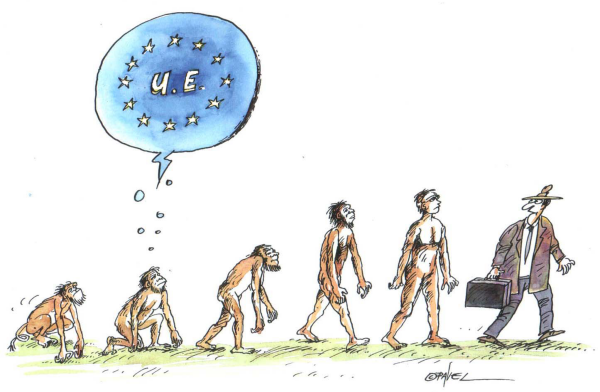 U.E.
©PAVEL